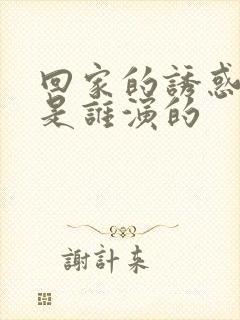 回家的誘惑
是誰演的
謝計来